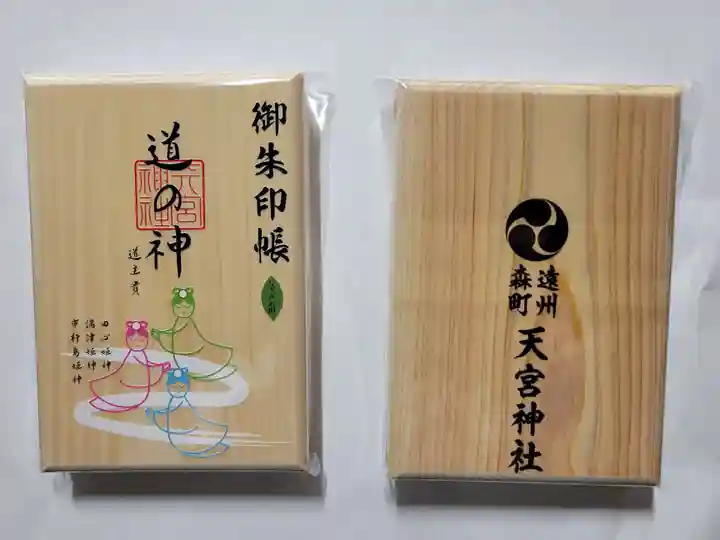 御朱印帳
道の神
天宮神社
道主貴
田心姫神
湍津姫神
市杵島姫神
遠州
森町
天宮神社